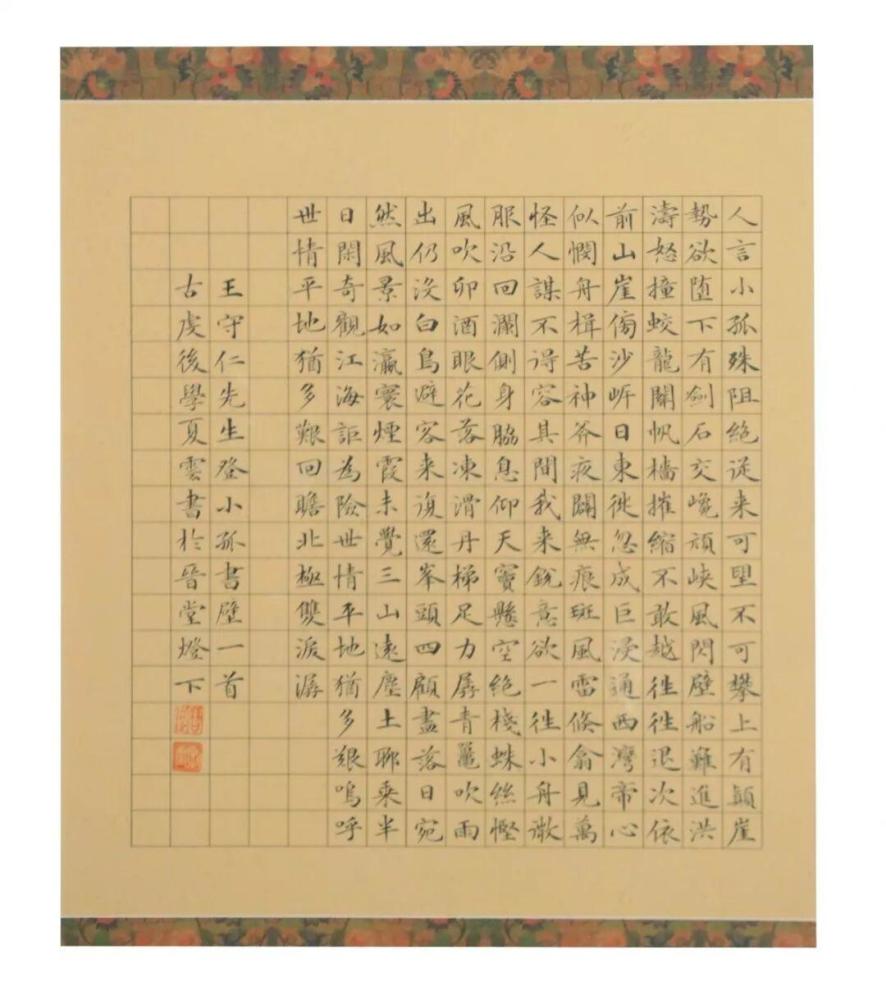 人言小孤殊阻絕從来可望不可攀上有顛崖
勢欲堕下有劍石交巉頑峽風閃壁船難進洪
濤怒撞蛟龍關帆檣摧縮不敢越徃徃退次依
前山崖傍沙岍日東徙忽成巨浸通西灣帝心
似憫舟楫苦神斧夜闢無痕斑風雷倐翕見萬
怪人謀不得容其間我来銳意欲一徃小舟微
服沿回瀾側身脇息仰天竇懸空絕棧蛛絲慳
風吹卯酒眼花落凍滑丹梯足力孱青鼉吹雨
出仍没白鳥避客来復還峯頭四顧盡落日宛
然風景如瀛寰煙霞未覺三山遠塵土聊乘半
日閑奇觀江海詎為險世情平地猶多艱嗚呼
世情平地猶多艱回瞻北極雙淚潺
王守仁先生登小孤書壁一首
古虞後學夏雲書於晉堂燈下